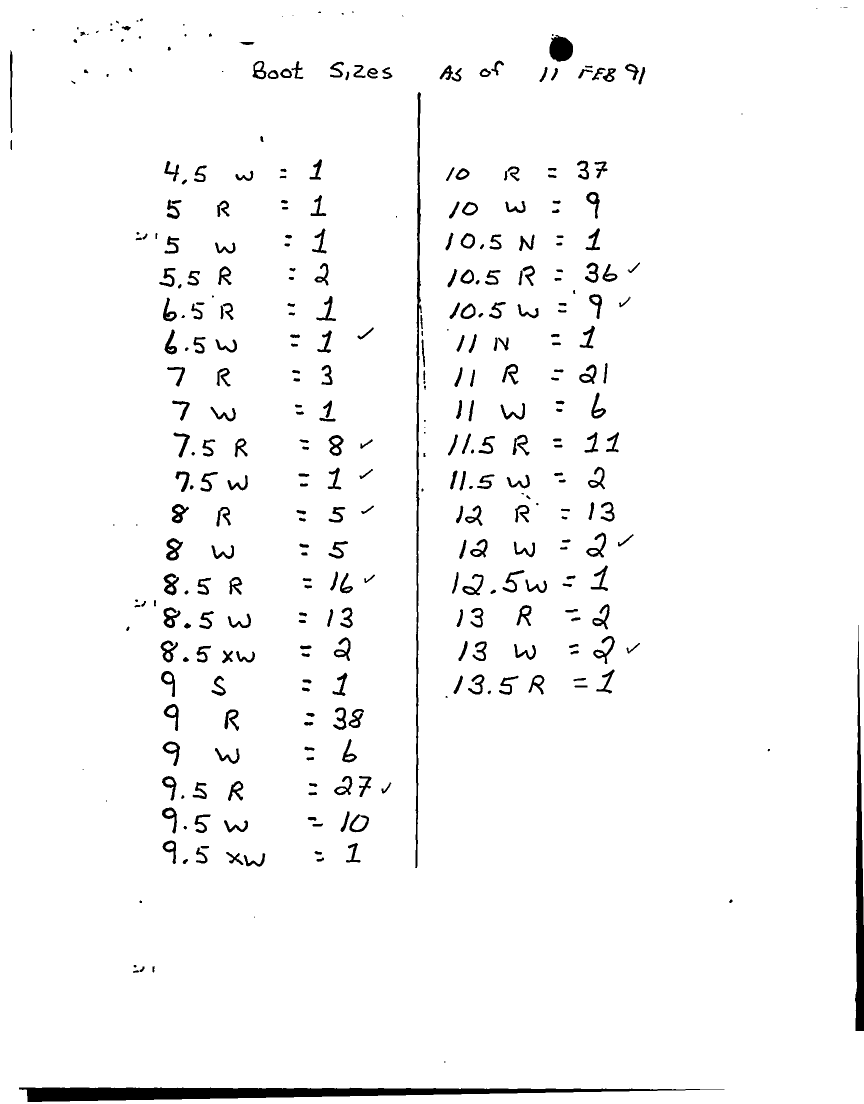 Boot Sizes As of 11 FEB 91
4.5 W = 1
5 R = 1
5 W = 1
5.5 R = 2
6.5 R = 1
6.5 W = 1 ✓
7 R = 3
7 W = 1
7.5 R = 8 ✓
7.5 W = 1 ✓
8 R = 5 ✓
8 W = 5
8.5 R = 16 ✓
8.5 W = 13
8.5 XW = 2
9 S = 1
9 R = 38
9 W = 6
9.5 R = 27 ✓
9.5 W = 10
9.5 XW = 1
10 R = 37
10 W = 9
10.5 N = 1
10.5 R = 36 ✓
10.5 W = 9 ✓
11 N = 1
11 R = 21
11 W = 6
11.5 R = 11
11.5 W = 2
12 R = 13
12 W = 2 ✓
12.5 W = 1
13 R = 2
13 W = 2 ✓
13.5 R = 1